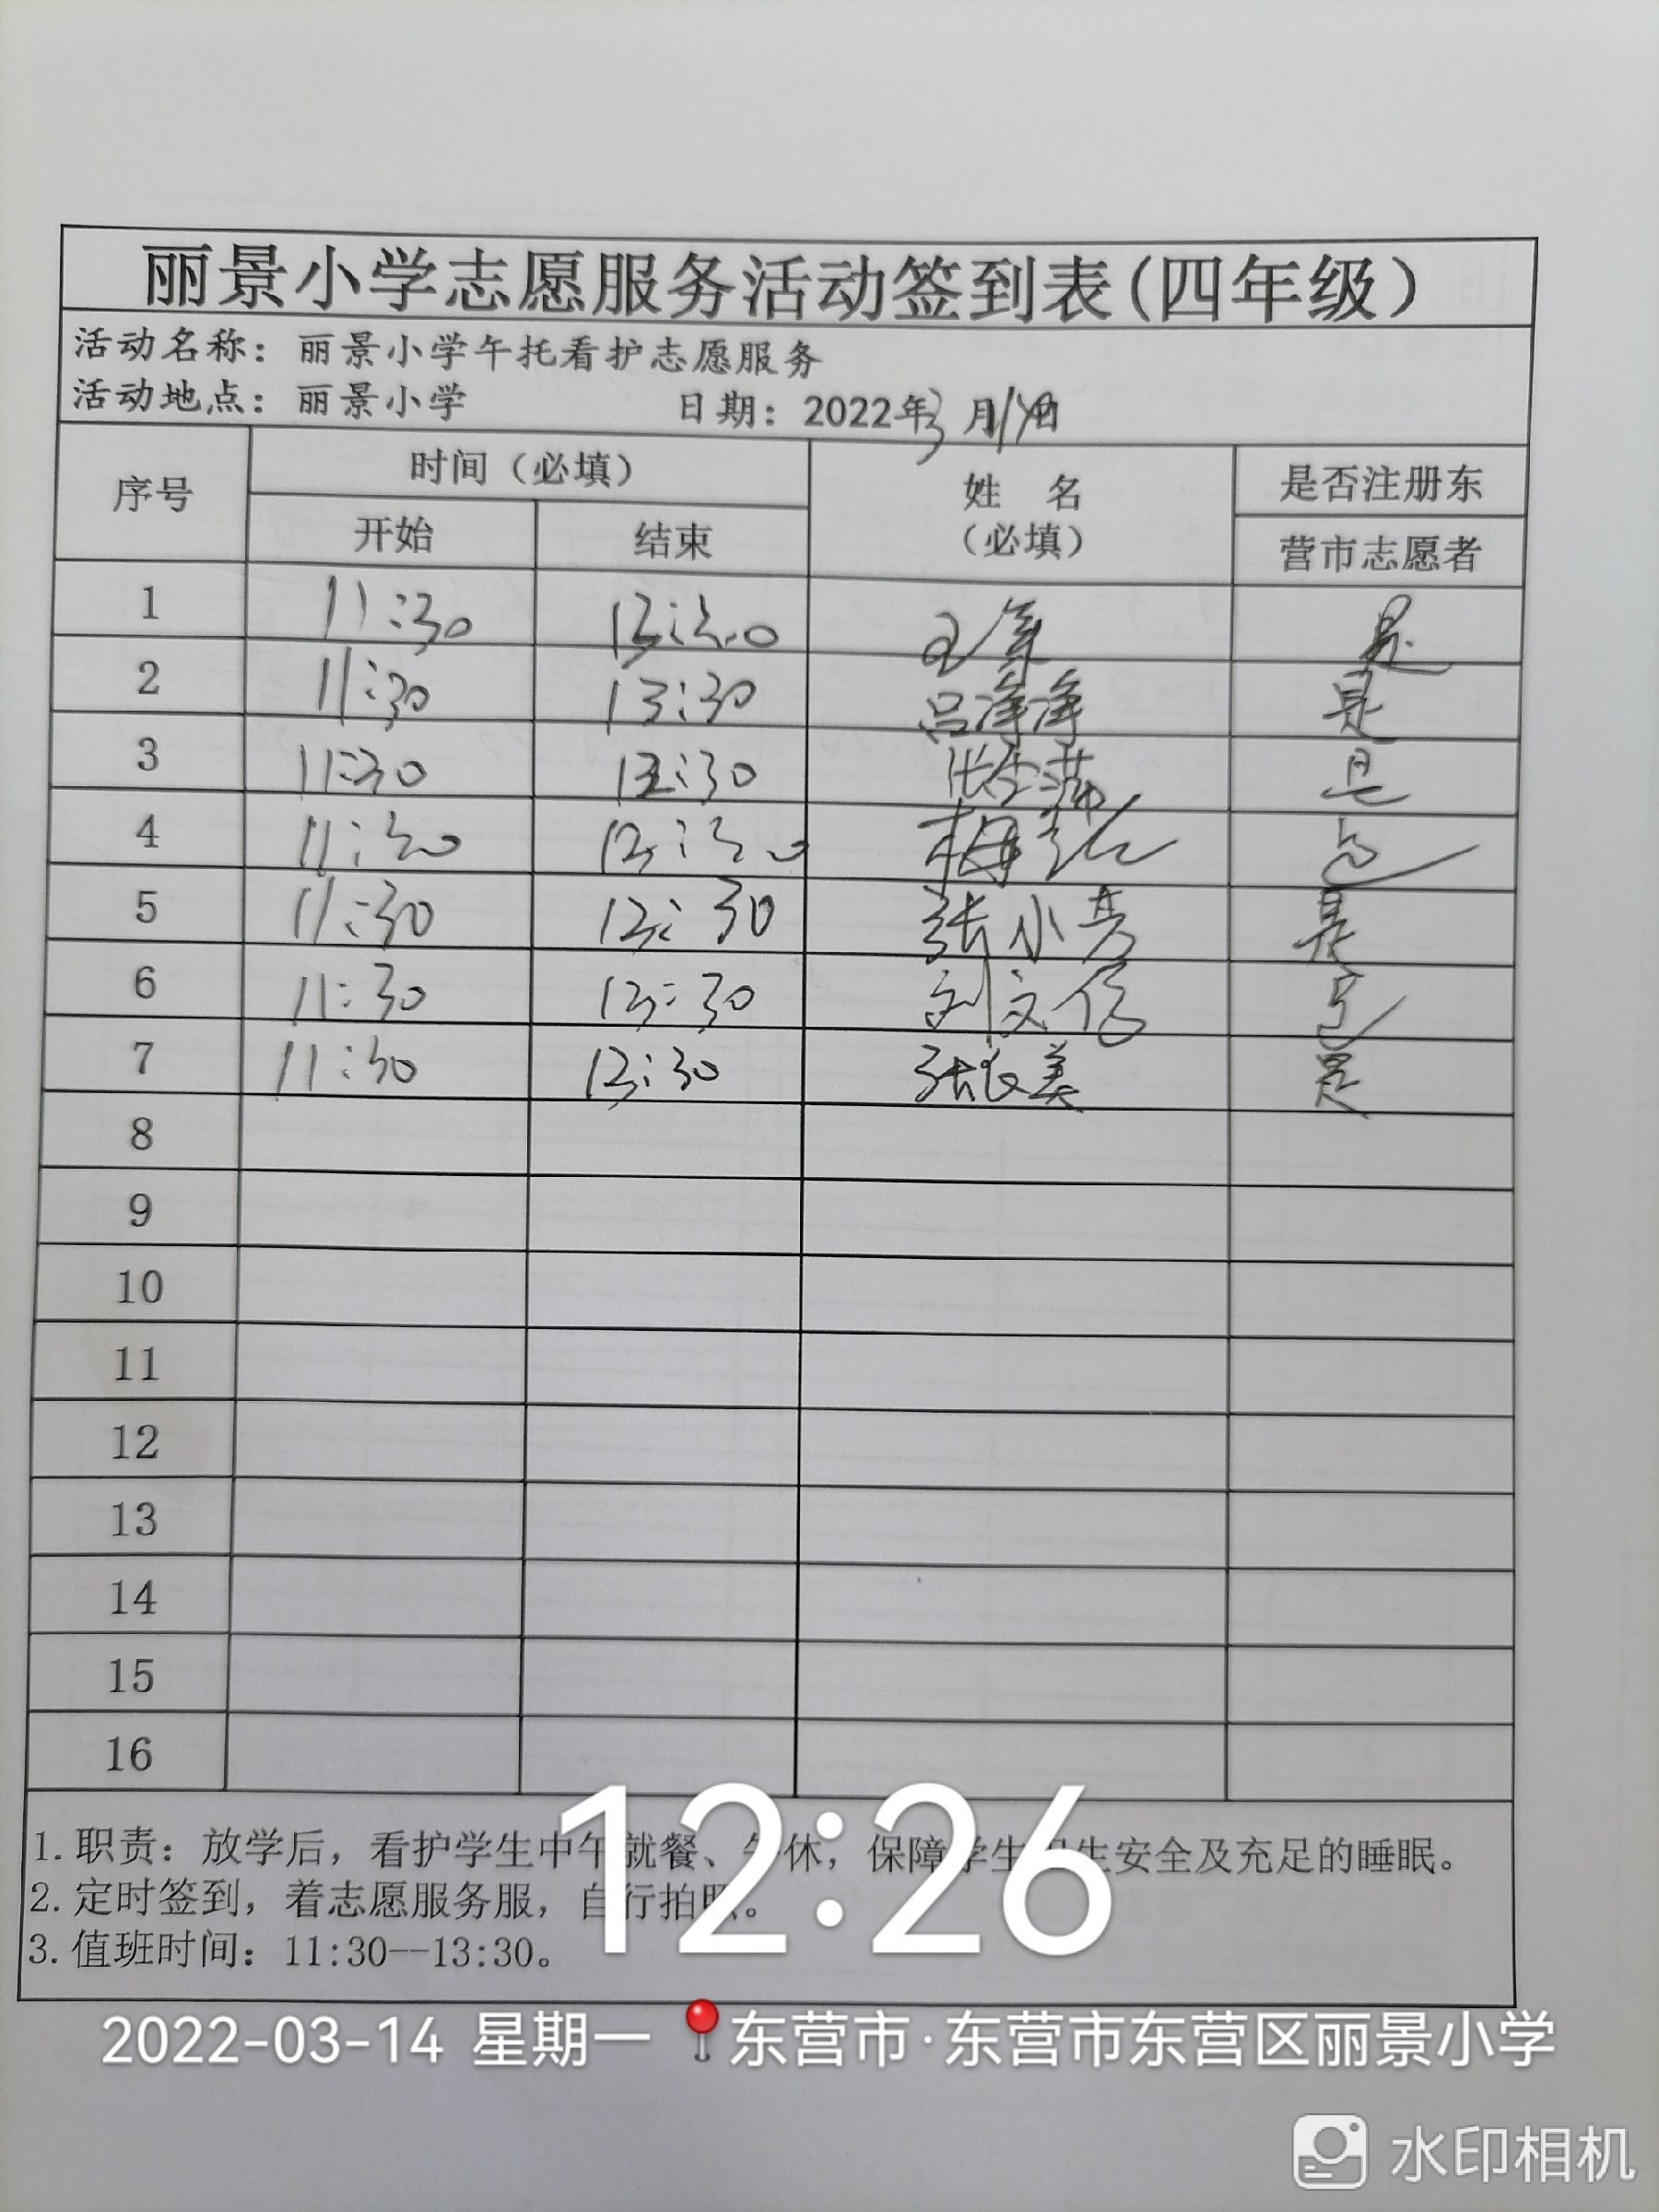 丽景小学志愿服务活动签到表(四年级)
活动名称：丽景小学午托看护志愿服务
活动地点：丽景小学 日期：2022年3月14日
序号 时间（必填） 姓 名 是否注册东
开始 结束 （必填） 营市志愿者
1 11:30 13:30 是
2 11:30 13:30 吕净净 是
3 11:30 13:30 是
4 11:30 13:30 是
5 11:30 13:30 张小芳 是
6 11:30 13:30 刘文 是
7 11:30 13:30 张美 是
8
9
10
11
12
13
14
15
16
1.职责：放学后，看护学生中午就餐、午休，保障学生卫生安全及充足的睡眠。
2.定时签到，着志愿服务服，自行拍照。
3.值班时间：11:30--13:30。
12:26
2022-03-14 星期一 东营市·东营市东营区丽景小学
水印相机